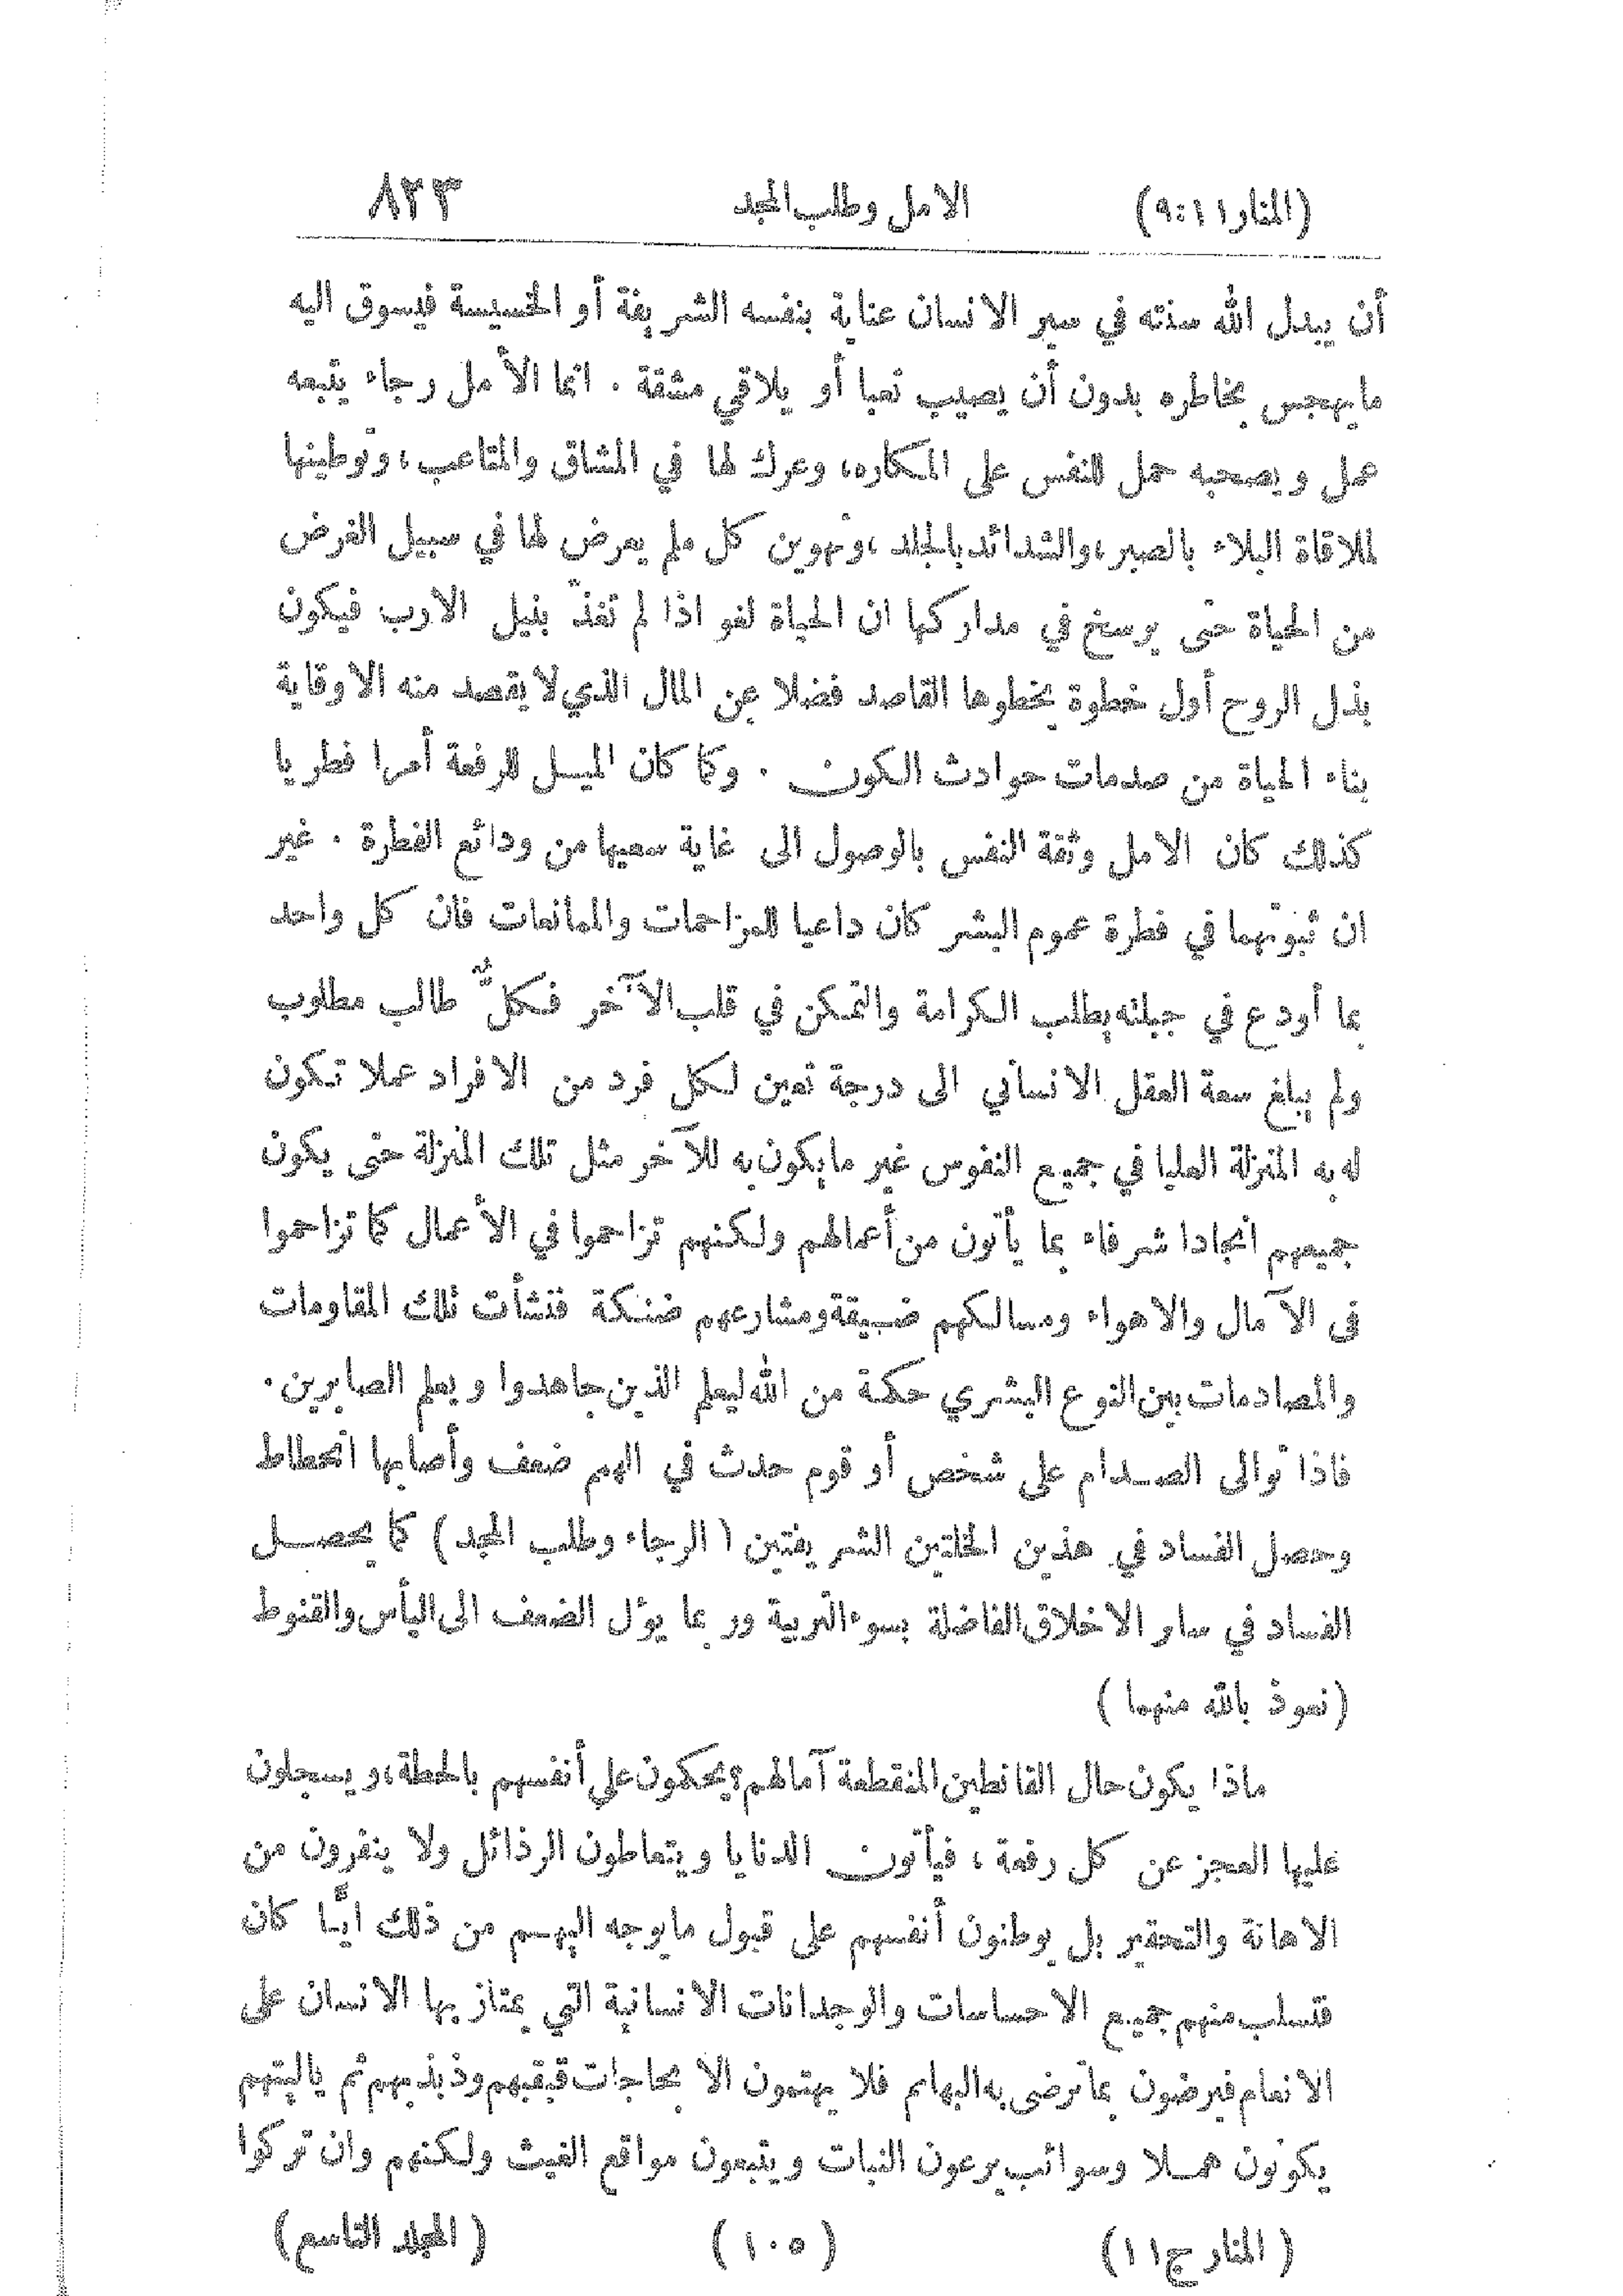 (المنار ١١:٩) الامل وطلب المجد ٨٣٣
أن يبدل الله سنته في سير الانسان عناية بنفسه الشريفة أو الخسيسة فيسوق اليه
ما يهجس بخاطره بدون أن يصيب تعبا أو يلاقي مشقة . انما الأمل رجاء يتبعه
عمل ويصحبه حمل للنفس على المكاره، وعرك لها في المشاق والمتاعب، وتوطينها
لملاقاة البلاء بالصبر، والشدائد بالجلد، وتهوين كل ملم يعرض لها في سبيل الغرض
من الحياة حتى يرسخ في مداركها ان الحياة لغو اذا لم تغذّ بنيل الارب فيكون
بذل الروح أول خطوة يخطوها القاصد فضلا عن المال الذي لا يقصد منه الا وقاية
بناء الحياة من صدمات حوادث الكون . وكما كان الميل للرفعة أمرا فطريا
كذلك كان الامل وثقة النفس بالوصول الى غاية سعيها من ودائع الفطرة . غير
ان ثبوتهما في فطرة عموم البشر كان داعيا للمزاحمات والممانعات فان كل واحد
بما أودع في جبلته يطلب الكرامة والتمكن في قلب الآخر فكلٌّ طالب مطلوب
ولم يبلغ سعة العقل الانساني الى درجة تعين لكل فرد من الافراد عملا تكون
له به المنزلة العليا في جميع النفوس غير ما يكون به للآخر مثل تلك المنزلة حتى يكون
جميعهم انجادا شرفاء بما يأتون من أعمالهم ولكنهم تزاحموا في الأعمال كما تزاحموا
في الآمال والاهواء ومسالكهم ضيقة ومشارعهم ضنكة فنشأت تلك المقاومات
والمصادمات بين النوع البشري حكمة من الله ليعلم الذين جاهدوا ويعلم الصابرين .
فاذا توالى الصدام على شخص أو قوم حدث في الهمم ضعف وأصابها انحطاط
وحصل الفساد في هذين الخلتين الشريفتين ( الرجاء وطلب المجد ) كما يحصل
الفساد في سائر الاخلاق الفاضلة بسوء التربية وربما يؤل الضعف الى اليأس والقنوط
(نعوذ بالله منهما )
ماذا يكون حال القانطين المنقطعة آمالهم؟ يحكمون على أنفسهم بالحطة، ويسجلون
عليها العجز عن كل رفعة ، فيأتون الدنايا ويتعاطون الرذائل ولا ينفرون من
الاهانة والتحقير بل يوطنون أنفسهم على قبول ما يوجه اليهم من ذلك ايًّا كان
فتسلب منهم جميع الاحساسات والوجدانات الانسانية التي يمتاز بها الانسان على
الانعام فيرضون بما ترضى به البهائم فلا يهتمون الا بحاجات قبقبهم وذبذبهم ثم ياليتهم
يكونون همـلا وسوائب يرعون النبات ويتبعون مواقع الغيث ولكنهم وان تركوا
( المنار ج ١١) (١٠٥ ) ( المجلد التاسع)